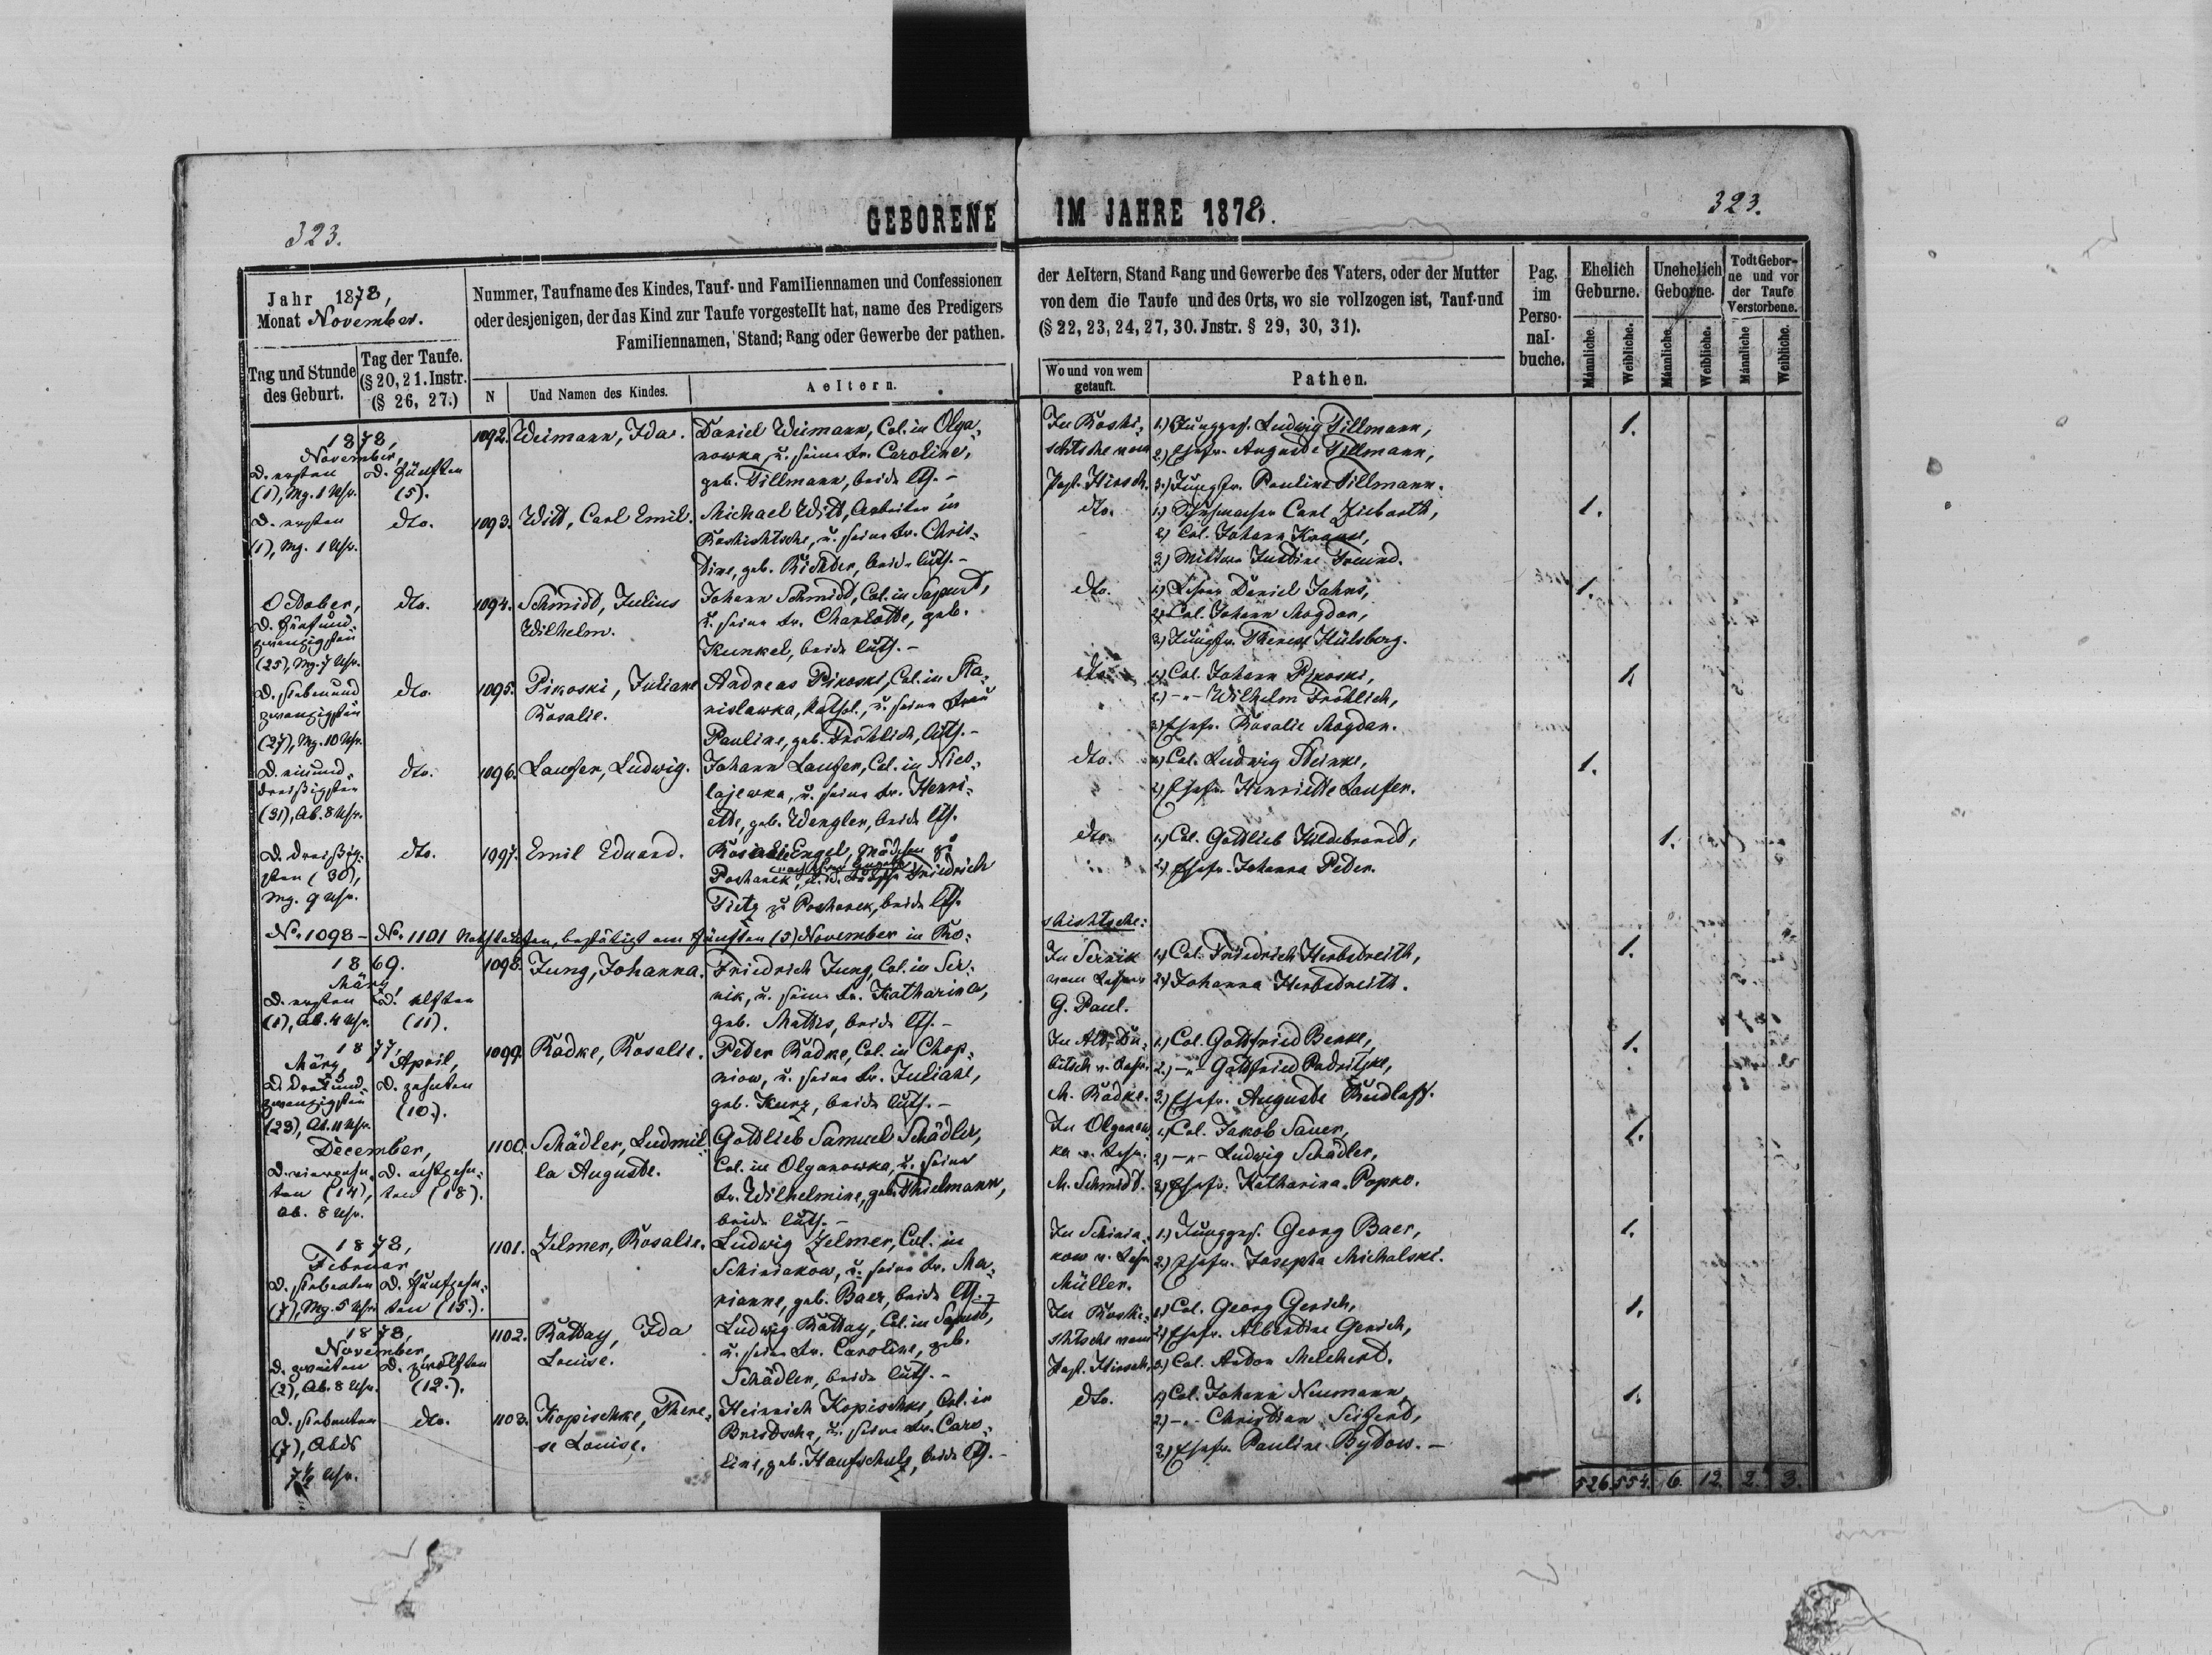 323.
GEBORENE IM JAHRE 1878.
323.
Jahr 1878,
Monat November.
Tag und Stunde des Geburt.
Tag der Taufe. (§ 20, 21. Instr. (§ 26, 27.)
Nummer, Taufname des Kindes, Tauf- und Familiennamen und Confessionen der Aeltern, Stand Rang und Gewerbe des Vaters, oder der Mutter
oder desjenigen, der das Kind zur Taufe vorgestellt hat, name des Predigers von dem die Taufe und des Orts, wo sie vollzogen ist, Tauf-und
Familiennamen, Stand; Rang oder Gewerbe der pathen. (§ 22, 23, 24, 27, 30. Jnstr. § 29, 30, 31).
N
Und Namen des Kindes.
Aeltern.
Wo und von wem getauft.
Pathen.
Pag. im Perso- nal- buche.
Ehelich Geburne.
Unehelich Geborne.
Todt Gebor- ne und vor der Taufe Verstorbene.
Männliche. Weibliche. Männliche. Weibliche. Männliche Weibliche.
1878,
November,
D. ersten
(1), Mg. 1 Uhr.
D. fünften
(5).
1092.
Weimann, Ida.
Daniel Weimann, Col. in Olga-
nowka u. seine Fr. Caroline,
geb. Tillmann, beide lth. -
In Roshi-
schtsche vom
Past. Hirsch.
1.) Junggs. Ludwig Tillmann,
2.) Ehefr. Auguste Tillmann,
3.) Jungfr. Pauline Tillmann.
1.
D. ersten
(1), Mg. 1 Uhr.
dto.
1093.
Witt, Carl Emil.
Michael Witt, Arbeiter in
Roshischtsche, u. seine Fr. Chris-
tine, geb. Richter, beide luth. -
dto.
1.) Schuhmacher Carl Ziebarth,
2.) Col. Johann Krause,
3.) Wittwe Justine Freund.
1.
October,
D. fünfund-
zwanzigsten
(25), Mg. 7 Uhr.
dto.
1094.
Schmidt, Julius
Wilhelm.
Johann Schmidt, Col. in Sapust,
u. seine Fr. Charlotte, geb.
Kunkel, beide luth. -
dto.
1.) Lehrer Daniel Jahns,
2.) Col. Johann Mogdan,
3.) Jungfr. Therese Hülsberg.
1.
D. siebenund
zwanzigsten
(27), Mg. 10 Uhr.
dto.
1095.
Pikoski, Juliane
Rosalie.
Andreas Pikoski, Col. in Sta-
nislawka, kathol., u. seine Frau
Pauline, geb. Fröhlich, luth. -
dto.
1.) Col. Johann Pikoski,
2.) -"- Wilhelm Fröhlich,
3.) Ehefr. Rosalie Mogdan.
1.
D. einund-
dreißigsten
(31), Ab. 8 Uhr.
dto.
1096.
Laufer, Ludwig.
Johann Laufer, Col. in Nico-
lajewka, u. seine Fr. Henri-
ette, geb. Wengler, beide lth.
dto.
1.) Col. Ludwig Steinke,
2.) Ehefr. Henriette Laufer.
1.
D. dreißig-
sten (30),
Mg. 9 Uhr.
dto.
1097.
Emil Eduard.
Rosalie Engel, Mädchen zu
Posharek, Friedrich
Tietz zu Posharek, beide lth.
dto.
1.) Col. Gottlieb Hildebrandt,
2.) Ehefr. Johanna Peter.
1.
No. 1098 - No. 1101 Nothtaufen, bestätigt am fünften (5) November in Ro-
shishtsche:
1869.
März,
D. ersten
(1), Ab. 4 Uhr.
D. elften
(11).
1098.
Jung, Johanna.
Friedrich Jung, Col. in Ser-
nik, u. seine Fr. Katharina,
geb. Mathis, beide lth. -
In Sernik
vom Lehrer
G. Paul.
1.) Col. Friedrich Herbstreith,
2.) Johanna Herbstreith.
1.
1877,
März,
D. dreiund-
zwanzigsten
(23), Ab. 11 Uhr.
April,
D. zehnten
(10.).
1099.
Radke, Rosalie.
Peter Radke, Col. in Chop-
niow, u. seine Fr. Juliane,
geb. Kunz, beide luth. -
In Alt-Du-
bitsch v. Lehr.
M. Radke.
1.) Col. Gottfried Benke,
2.) -"- Gottfried Radritzke,
3.) Ehefr. Auguste Rudlaff.
1.
December,
D. vierzehn-
ten (14),
Ab. 8 Uhr.
D. achtzehn-
ten (18).
1100.
Schädler, Ludmil-
la Auguste.
Gottlieb Samuel Schädler,
Col. in Olganowka, u. seine
Fr. Wilhelmine, geb. Thielmann,
beide luth. -
In Olganow-
ka v. Lehr.
M. Schmidt.
1.) Col. Jakob Sauer,
2.) -"- Ludwig Schädler,
3.) Ehefr. Katharina Popko.
1.
1878,
Februar,
D. siebenten
(7), Mg. 5 Uhr.
D. fünfzehn-
ten (15.).
1101.
Zelmer, Rosalie.
Ludwig Zelmer, Col. in
Schiniakow, u. seine Fr. Ma-
rianne, geb. Baer, beide lth. -
In Schinia-
kow v. Lehr.
Müller.
1.) Junggs. Georg Baer,
2.) Ehefr. Josepha Michalski.
1.
1878,
November,
D. zweiten
(2), Ab. 8 Uhr.
D. zwölften
(12.).
1102.
Rattay, Ida
Louise.
Ludwig Rattay, Col. in Sapust,
u. seine Fr. Caroline, geb.
Schädler, beide luth. -
In Roshi-
shtsche vom
Past. Hirsch.
1.) Col. Georg Gerich,
2.) Ehefr. Albertine Gerich,
3.) Col. Anton Melchert.
1.
D. siebenten
(7), Abds
7½ Uhr.
dto.
1103.
Kopischke, There-
se Louise.
Heinrich Kopischke, Col. in
u. seine Fr. Caro-
line, geb. Haufschulz, beide lth. -
dto.
1.) Col. Johann Neumann,
2.) -"- Christian Seifert,
3.) Ehefr. Pauline Bydow. -
1.
526. 554. 6. 12. 2. 3.